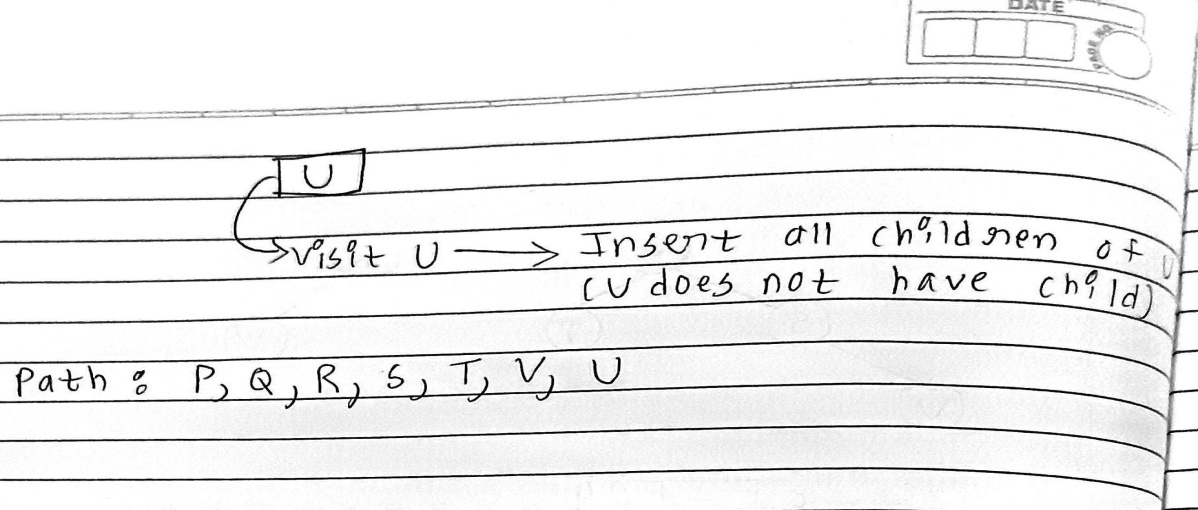 DATE
PAGE NO.
U
visit U → Insert all children of U
(U does not have child)
Path : P, Q, R, S, T, V, U